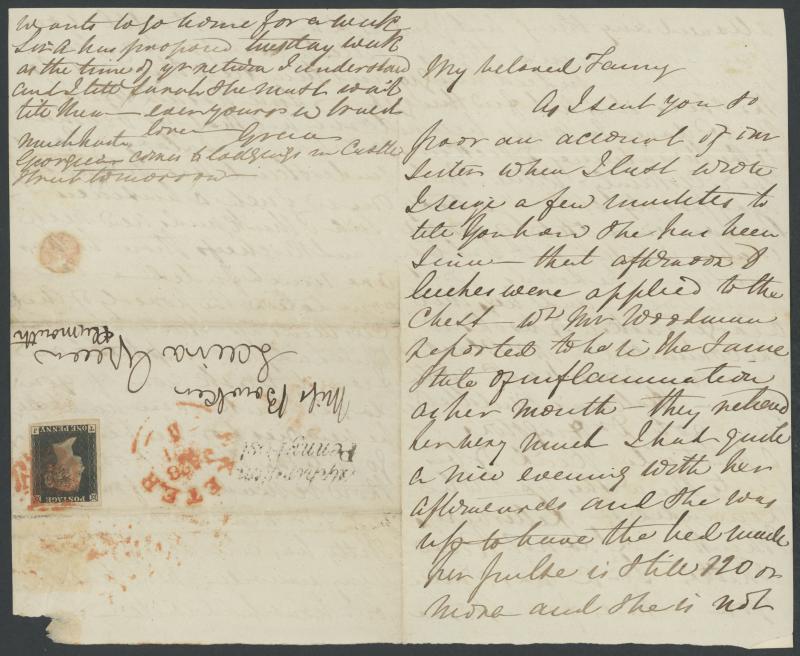 wants to go home for a week
Sir A has proposed tuesday week
as the time of yr return I understand
and I tell Sarah she must wait
till then — ever yours in truest
much haste love Green
Georgiea comes to lodgings in Castle
Street tomorrow —
My beloved Fanny
As I sent you so
poor an account of our
Sister when I last wrote
I seize a few minutes to
tell you how she has been
since — that afternoon 8
leeches were applied to the
Chest wh Mr Woodman
reported to be in the same
State of inflammation
as her mouth — they relieved
her very much I had quite
a nice evening with her
afterwards and she was
up to have the bed made
her pulse is still 120 or
more and she is not
Miss Bowker
Green
Plymouth
Penny Post
EXETER
POSTAGE
ONE PENNY